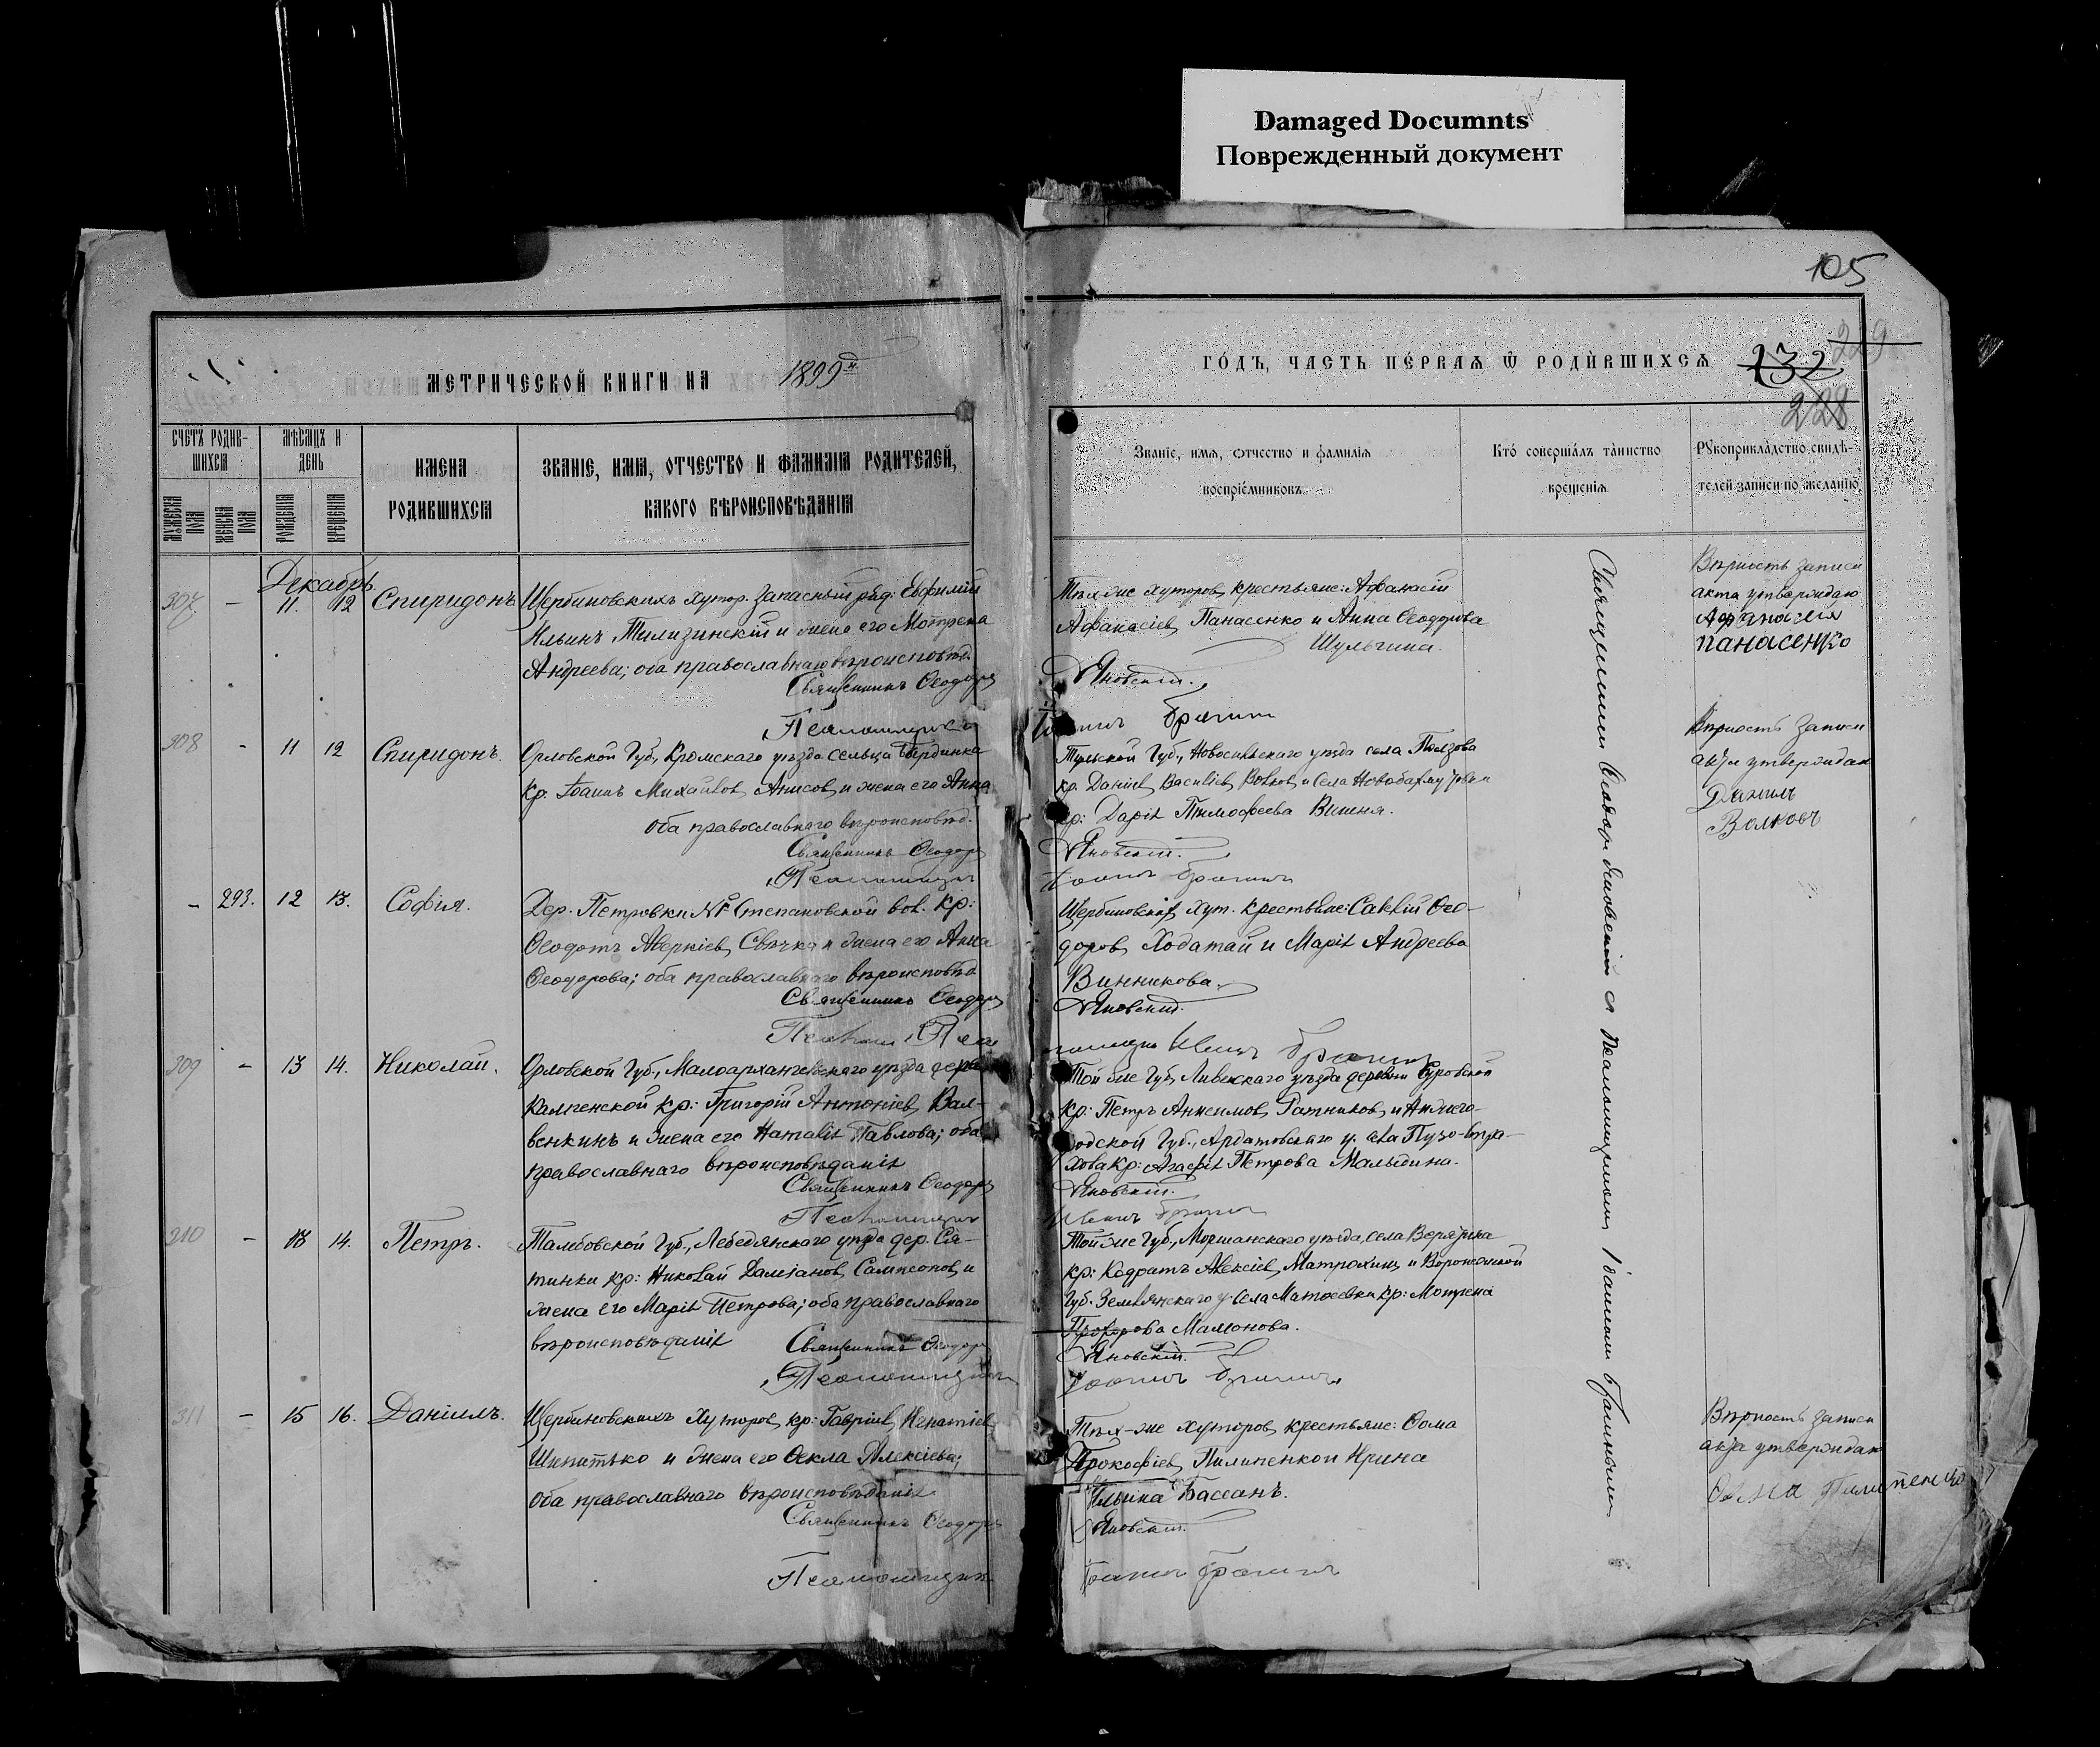 Damaged Documnts
Поврежденный документ
105
МЕТРИЧЕСКОЙ КНИГИ НА 1899й
ГО́ДЪ, ЧАСТЬ ПЕ́РВАѦ Ѿ РОДИ́ВШИХСѦ
132
229
228
СЧЕТЪ РОДИВ-
ШИХСѦ
МѢСѦЦЪ И
ДЕНЬ
ИМЕНА
РОДИВШИХСѦ
ЗВАНІЕ, ИМѦ, ОТЧЕСТВО И ФАМИЛІѦ РОДИТЕЛЕЙ,
КАКОГО ВѢРОИСПОВѢДАНІѦ
МУЖЕСКА ПОЛА
ЖЕНСКА ПОЛА
РОЖДЕНІѦ
КРЕЩЕНІѦ
Званіе, имѧ, отчество и фамиліѧ
воспріе́мниковъ
Кто́ соверша́лъ та́инство
крещеніѧ
Рукоприкла́дство свидѣ-
телей записи по желанію
Декабрь
307. - 11. 12 Спиридонъ
Щербиновскихъ хутор. запасный ряд: Евфимій
Ильинъ Тилизинскій и жена его Мотрена
Андреева; оба православнаго вѣроисповѣд.
Священникъ Ѳеодоръ
Тѣхъ-же хуторов, крестьяне: Афанасій
Афанасіев, Панасенко и Анна Ѳеодорова
Шульгина.
Яновскій.
Вѣрность записи
акта утверждаю
Афанасий
панасенко
Псаломщикъ
Іоаннъ
308 - 11 12 Спиридонъ.
Орловской Губ., Кромскаго уѣзда сельца
Кр. Іоаннъ Михайлов, Анисов, и жена его Анна
оба православнаго вѣроисповѣд.
Священникъ Ѳеодоръ
Псаломщикъ
Тульской Губ., Новосильскаго уѣзда села
кр. Даніил, Василіев, Волков, и села
кр: Дарія Тимофеева Вишня.
Яновскій.
Іоаннъ
Вѣрность записи
акта утверждаю
Данилъ
Волковъ
- 293. 12 13. Софія.
Дер. Петровки № Степановской вол. Кр:
Ѳеодотъ Аверкіев, Свѣчка и жена его Анна
Ѳеодорова; оба православнаго вѣроисповѣд
Священникъ Ѳеодоръ
Щербиновских, хут. крестьяне: Савкій Ѳео-
доров, Ходатай и Марія Андреева
Винникова.
Яновскій.
309 - 13 14. Николай.
Орловской Губ., Малоархангельскаго уѣзда
кр: Григорій Антоніев, Вал-
венкинъ и жена его Наталія Павлова; оба
православнаго вѣроисповѣданія
Священникъ Ѳеодоръ
Псаломщикъ
Той-же Губ, Ливенскаго уѣзда деревни
кр: Петръ Анисимов, Ратников, и Нижего-
родской Губ., Ардатовскаго у.
кр: Агафія Петрова Малыгина.
Яновскій.
310 - 13 14. Петръ.
Тамбовской Губ., Лебедянскаго уѣзда дер. Ся-
тинки кр: Николай Даміанов, Сампсонов, и
жена его Марія Петрова; оба православнаго
вѣроисповѣданія Священникъ Ѳеодоръ
Псаломщикъ
Той-же Губ., Моршанскаго уѣзда, села
кр: Кодратъ Алексіев, Матрохин, и Воронежской
Губ. Землянскаго у. Села Матвеевки кр: Мотрена
Прохорова Мамонова.
Яновскій.
Іоаннъ
311 - 15 16. Даніилъ.
Щербиновскихъ Хуторов, кр: Гавріил, Игнатіев,
Шипитько и жена его Ѳекла Алексіева;
оба православнаго вѣроисповѣданія
Священникъ Ѳеодоръ
Псаломщикъ
Тѣхъ-же хуторов, крестьяне: Ѳома
Прокофіев, Пилипенко и Ирина
Ильина Бассанъ.
Яновскій.
Іоаннъ
Вѣрность записи
акта утверждаю
Ѳома Пилипенко